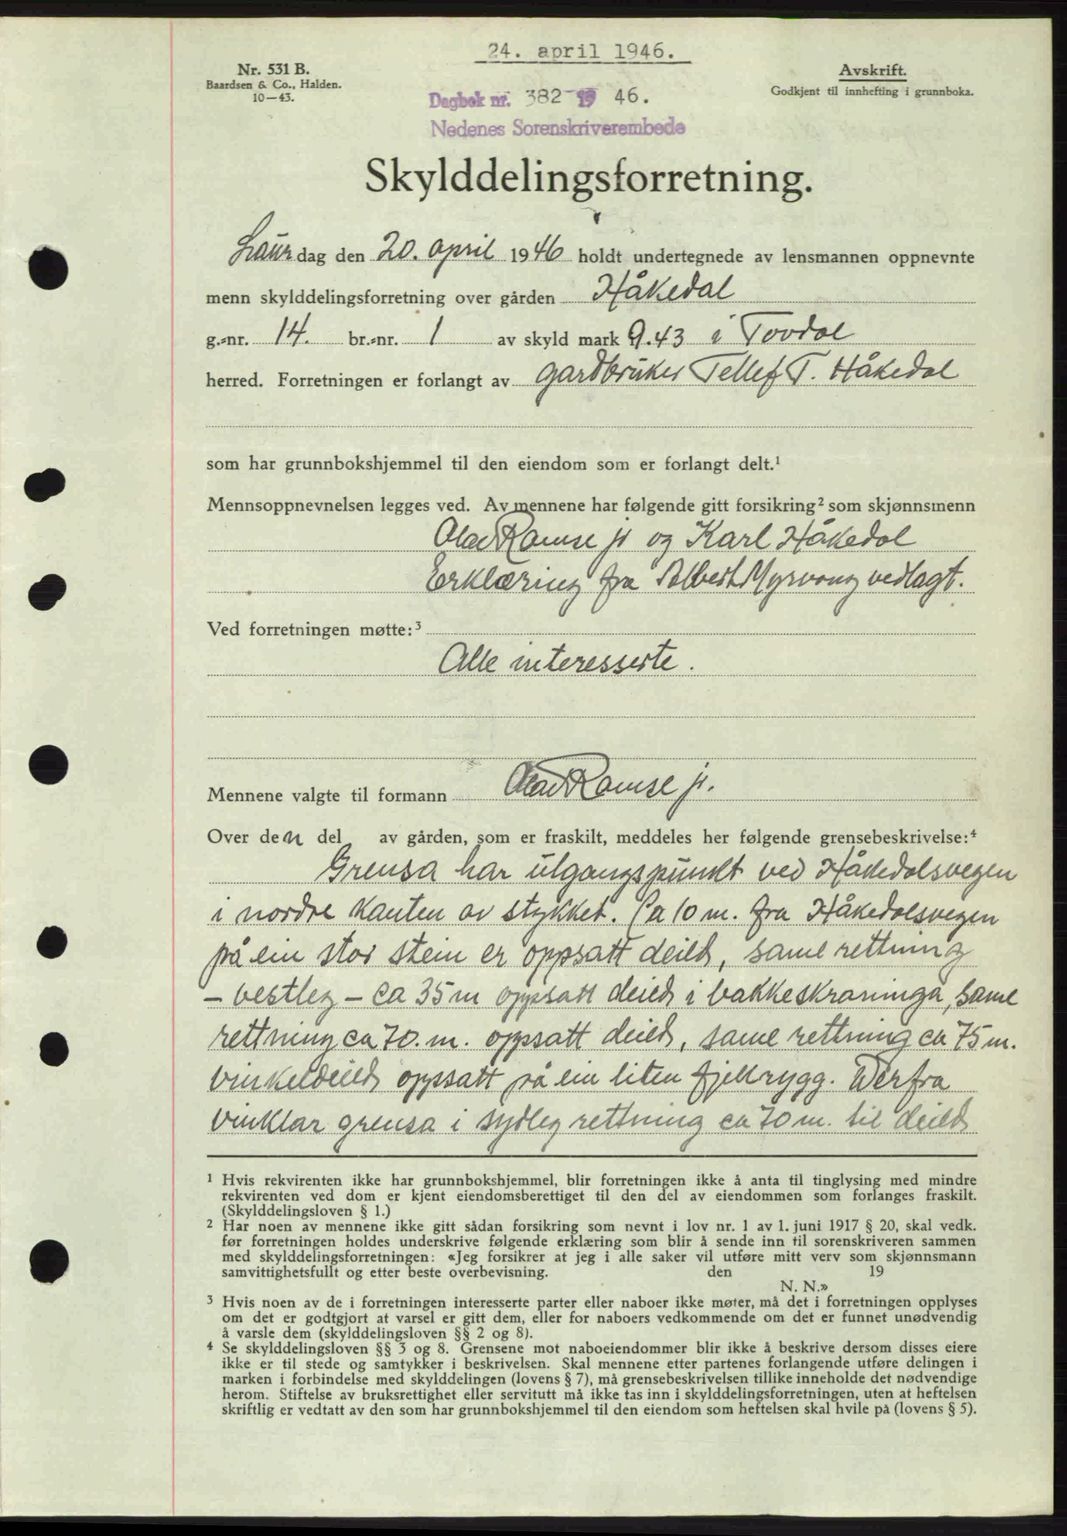 24. april 1946.
Nr. 531 B.
Baardsen & Co., Halden.
10—43.
Avskrift.
Godkjent til innhefting i grunnboka.
Dagbok nr. 382 19 46.
Nedenes Sorenskriverembede
Skylddelingsforretning.
Laurdag den 20. april 1946 holdt undertegnede av lensmannen oppnevnte
menn skylddelingsforretning over gården Håkedal
g.-nr. 14. br.-nr. 1 av skyld mark 9.43 i Tovdal
herred. Forretningen er forlangt av gardbruker Tellef T. Håkedal
som har grunnbokshjemmel til den eiendom som er forlangt delt.¹
Mennsoppnevnelsen legges ved. Av mennene har følgende gitt forsikring² som skjønnsmenn
Olav Ramse jr og Karl Håkedal
Erklæring fra Albert Myrvang vedlagt.
Ved forretningen møtte:³
Alle interesserte.
Mennene valgte til formann Olav Ramse jr.
Over den del av gården, som er fraskilt, meddeles her følgende grensebeskrivelse:⁴
Grensa har utgangspunkt ved Håkedalsvegen
i nordre kanten av stykket. Ca 10 m. fra Håkedalsvegen
på ein stor stein er oppsatt deild, same rettning
– vestleg – ca 35 m oppsatt deild i bakkeskråninga, same
rettning ca 70. m. oppsatt deild, same rettning ca 75 m.
vinkeldeild oppsatt på ein liten fjellrygg. Derfra
vinklar grensa i sydleg rettning ca 70 m. til deild
¹ Hvis rekvirenten ikke har grunnbokshjemmel, blir forretningen ikke å anta til tinglysing med mindre
rekvirenten ved dom er kjent eiendomsberettiget til den del av eiendommen som forlanges fraskilt.
(Skylddelingsloven § 1.)
² Har noen av mennene ikke gitt sådan forsikring som nevnt i lov nr. 1 av 1. juni 1917 § 20, skal vedk.
før forretningen holdes underskrive følgende erklæring som blir å sende inn til sorenskriveren sammen
med skylddelingsforretningen: «Jeg forsikrer at jeg i alle saker vil utføre mitt verv som skjønnsmann
samvittighetsfullt og etter beste overbevisning. den 19
N. N.»
³ Hvis noen av de i forretningen interesserte parter eller naboer ikke møter, må det i forretningen opplyses
om det er godtgjort at varsel er gitt dem, eller for naboers vedkommende om det er funnet unødvendig
å varsle dem (skylddelingsloven §§ 2 og 8).
⁴ Se skylddelingsloven §§ 3 og 8. Grensene mot naboeiendommer blir ikke å beskrive dersom disses eiere
ikke er til stede og samtykker i beskrivelsen. Skal mennene etter partenes forlangende utføre delingen i
marken i forbindelse med skylddelingen (lovens § 7), må grensebeskrivelsen tillike inneholde det nødvendige
herom. Stiftelse av bruksrettighet eller servitutt må ikke tas inn i skylddelingsforretningen, uten at heftelsen
skriftlig er vedtatt av den som har grunnbokshjemmel til den eiendom som heftelsen skal hvile på (lovens § 5).